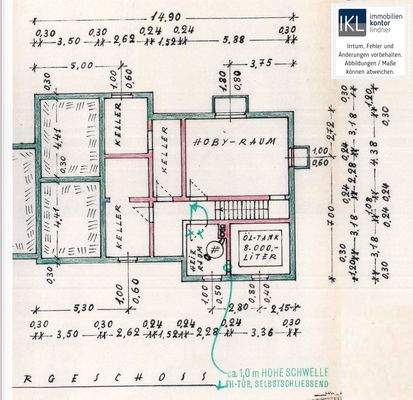 immobilien
kontor
lindner
IKL
Irrtum, Fehler und
Änderungen vorbehalten.
Abbildungen / Maße
können abweichen.
14,90
0,30 0,24 0,24 0,24 0,30
3,50 2,62 1,52 5,88
5,00 1,00 1,80 3,75
0,60 0,80
KELLER
KELLER
HOBY-RAUM
4,41
0,30
4,41
KELLER
HEIZ
RAUM
ÖL-TANK
8.000,-
LITER
1,00
0,60
2,72
7,00
0,30 3,18 0,24 3,18 0,30
1,20 4,38 1,08 3,18
5,30 1,00 1,00 2,80 0,80 2,15
0,60 0,50 0,40
0,30 0,30 0,24 0,24 0,24 0,30
3,50 2,62 1,52 2,28 3,36
ca. 1,0 m HOHE SCHWELLE
FH-TÜR, SELBSTSCHLIESSEND
RGESCHOSS